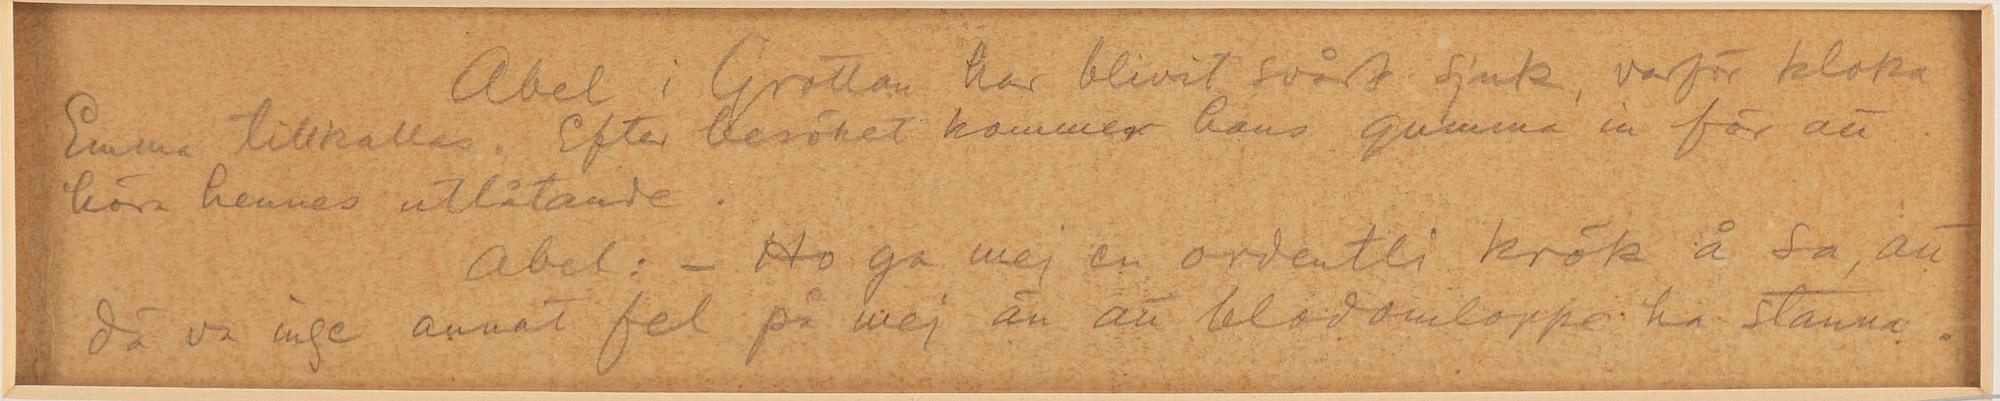 Abel i Grottan har blivit svårt sjuk, varför kloka
Emma tillkallas. Efter besöket kommer hans gumma in för att
höra hennes utlåtande.
Abel: – Ho ga mej en ordentli krök å sa, att
dä va inge annat fel på mej än att blodomloppe ha stanna.